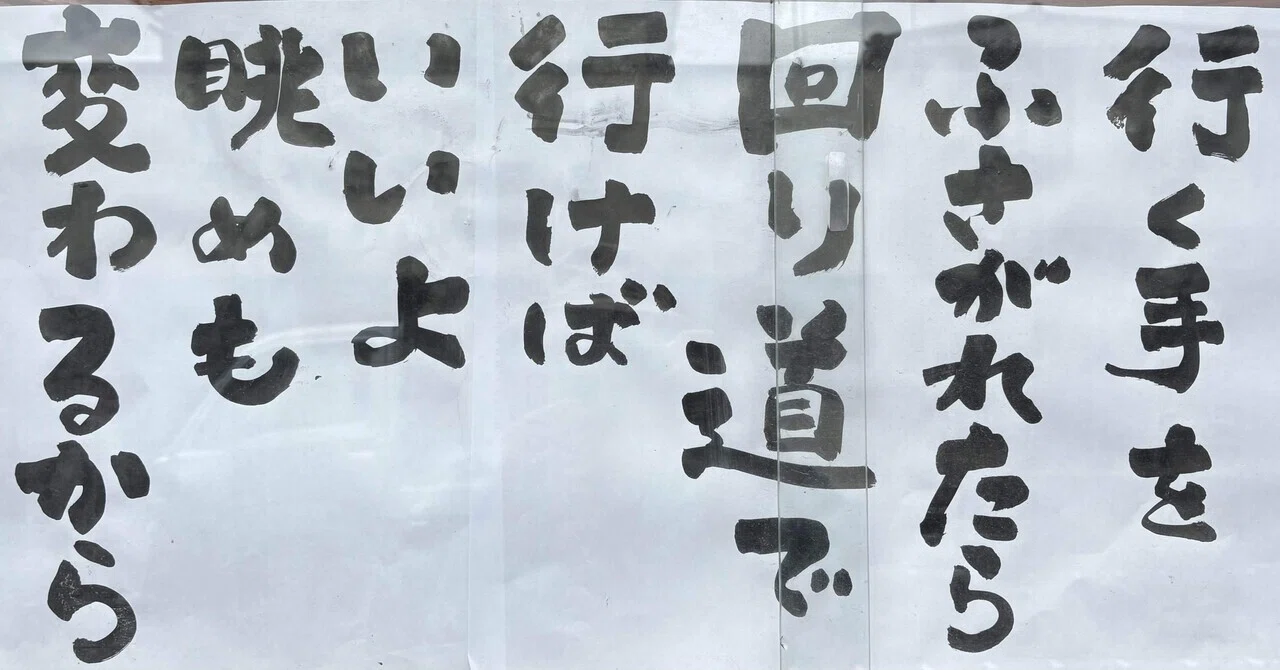 行く手を
ふさがれたら
回り道で
行けば
いいよ
眺めも
変わるから